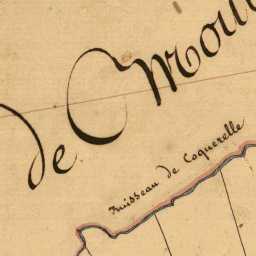 de Mou
Ruisseau de Coquerelle